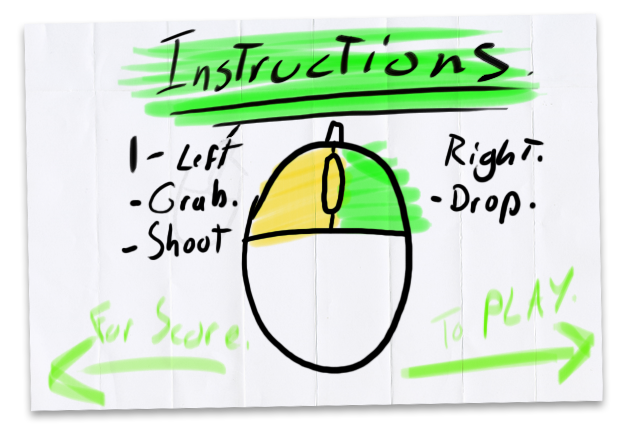 Instructions.
1 - Left
- Grab.
- Shoot
Right.
- Drop.
For Score.
To PLAY.